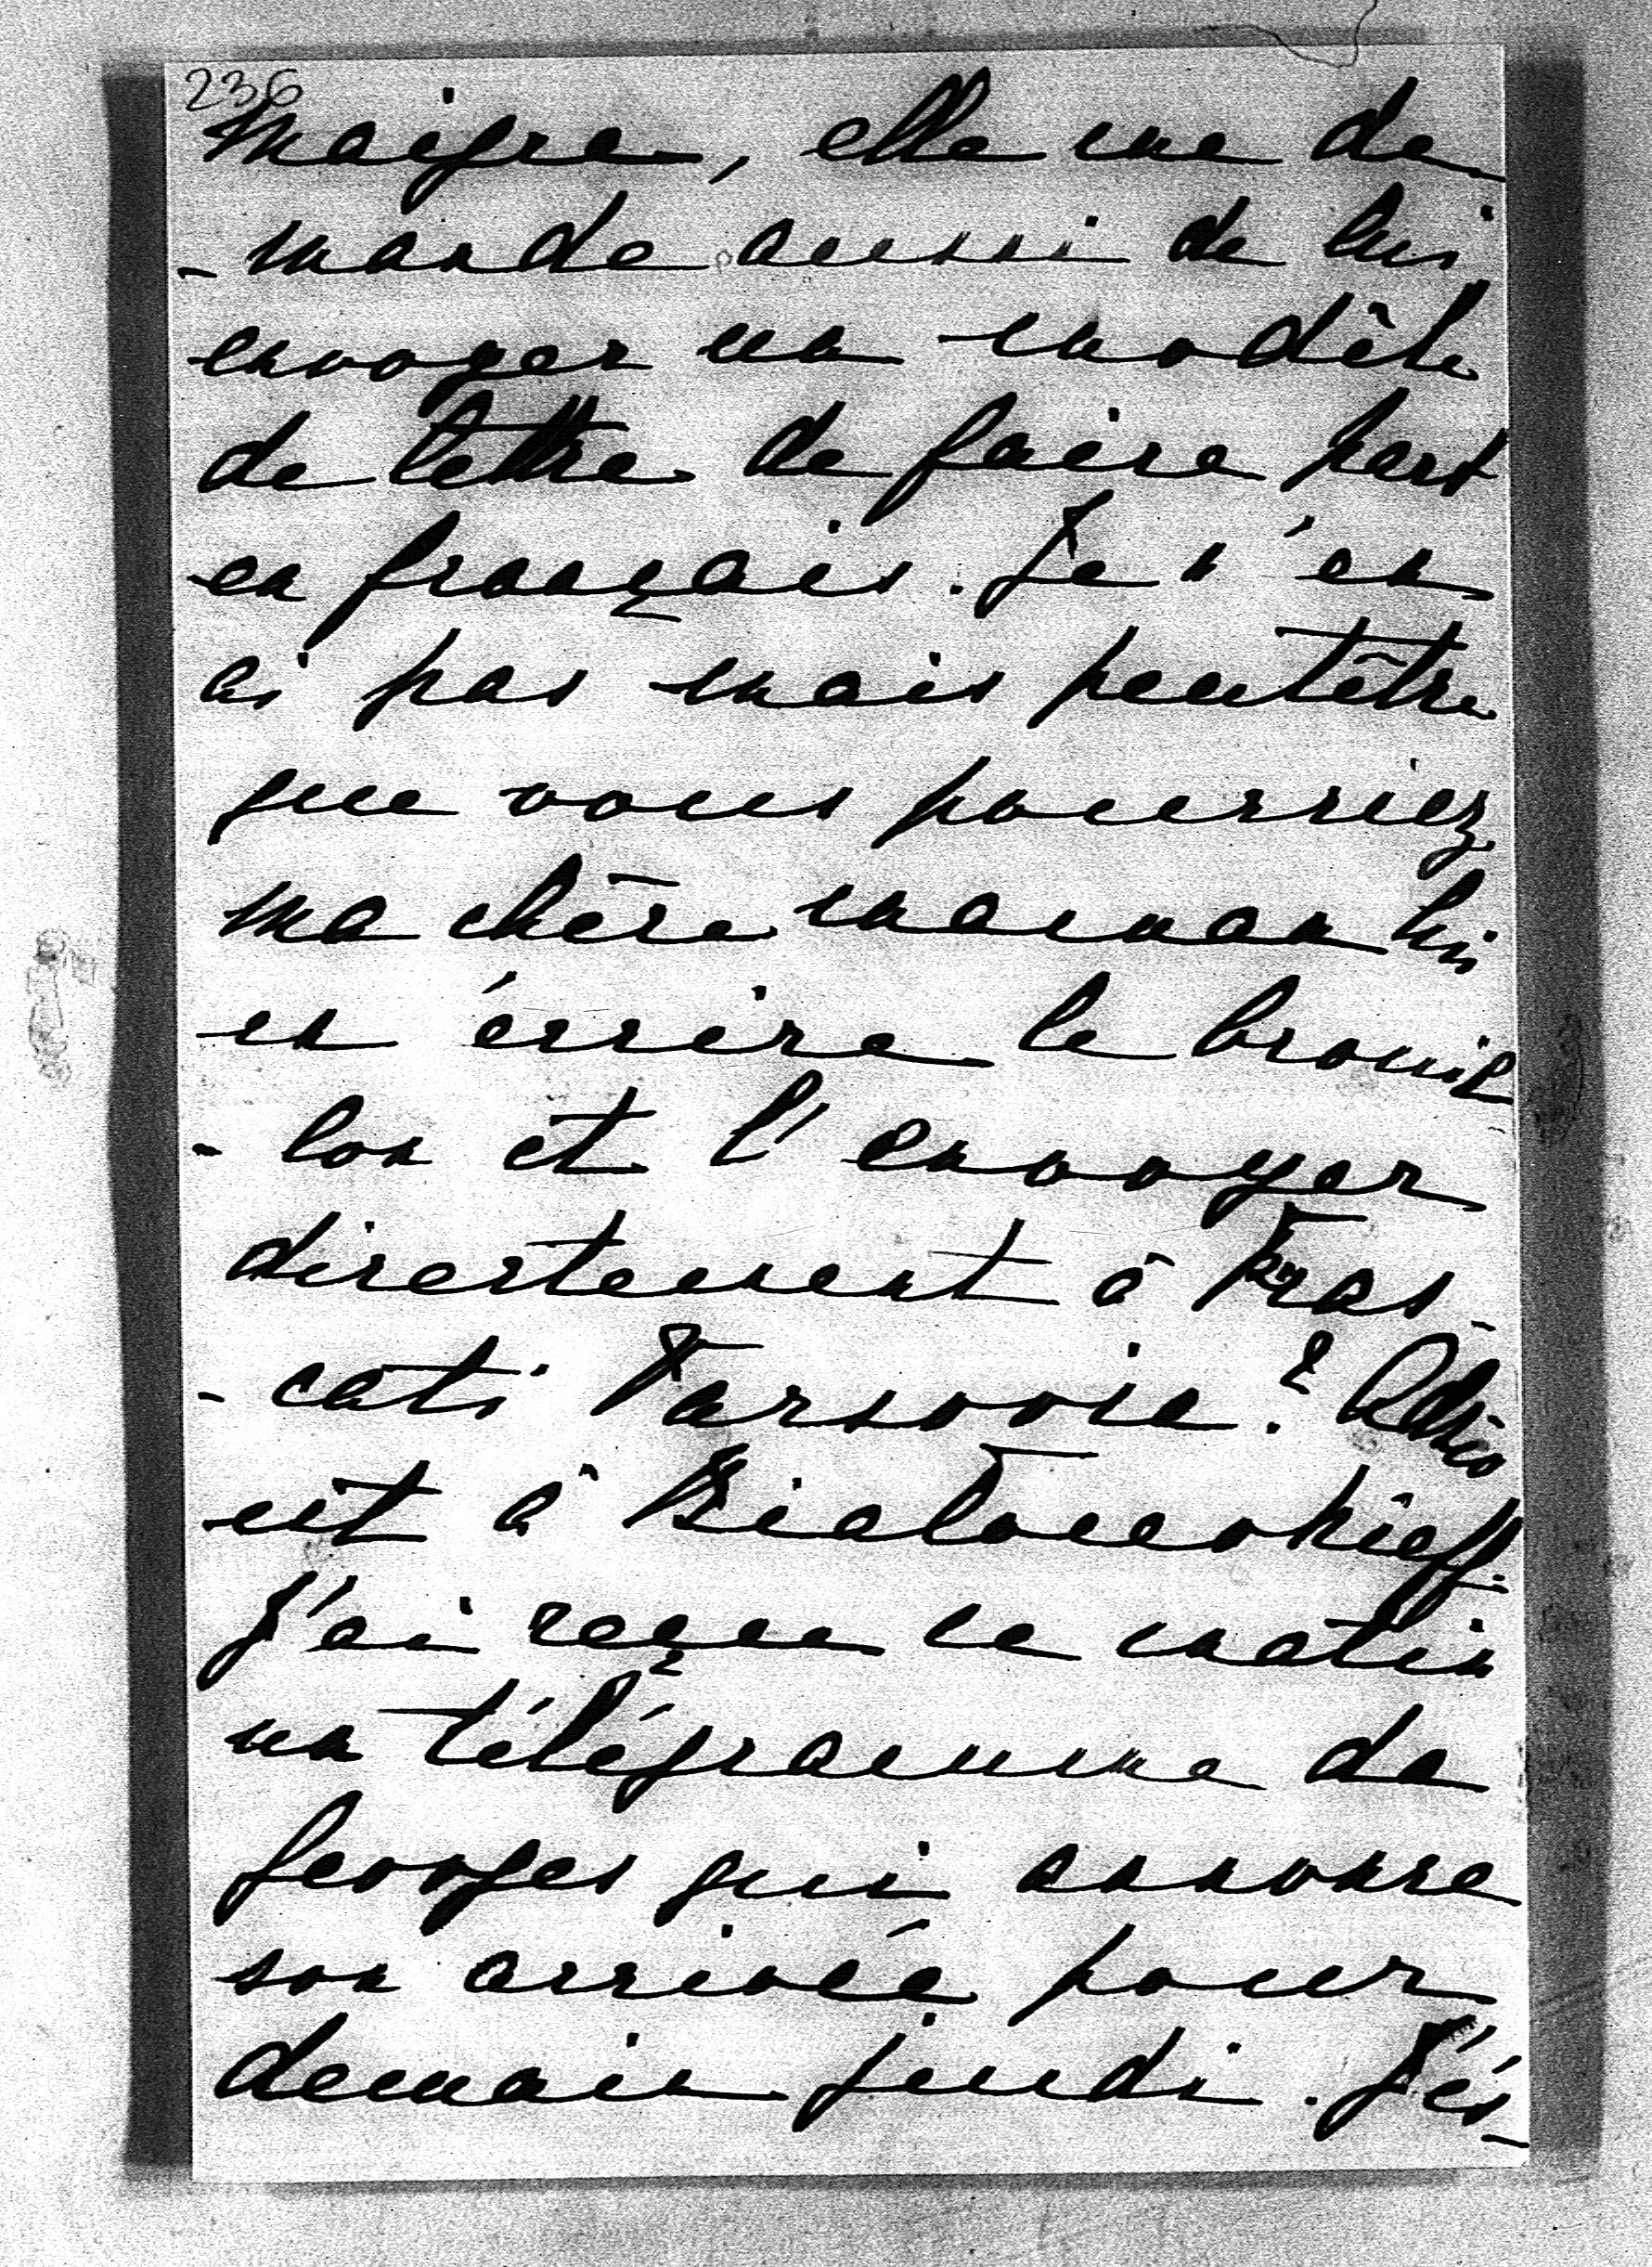 236
maigre, elle me de-
-mande aussi de lui
envoyer un modèle
de lettre de faire part
en français. Je n'en
ai pas mais peutêtre
que vous pourriez
ma chère maman lui
en écrire le brouil
-lon et l'envoyer
directement à Fras-
-cati Varsovie? Adzio
est à Bialocerkieff.
J'ai reçu ce matin
un télégramme de
Georges qui annonce
son arrivée pour
demain jeudi. J'es-